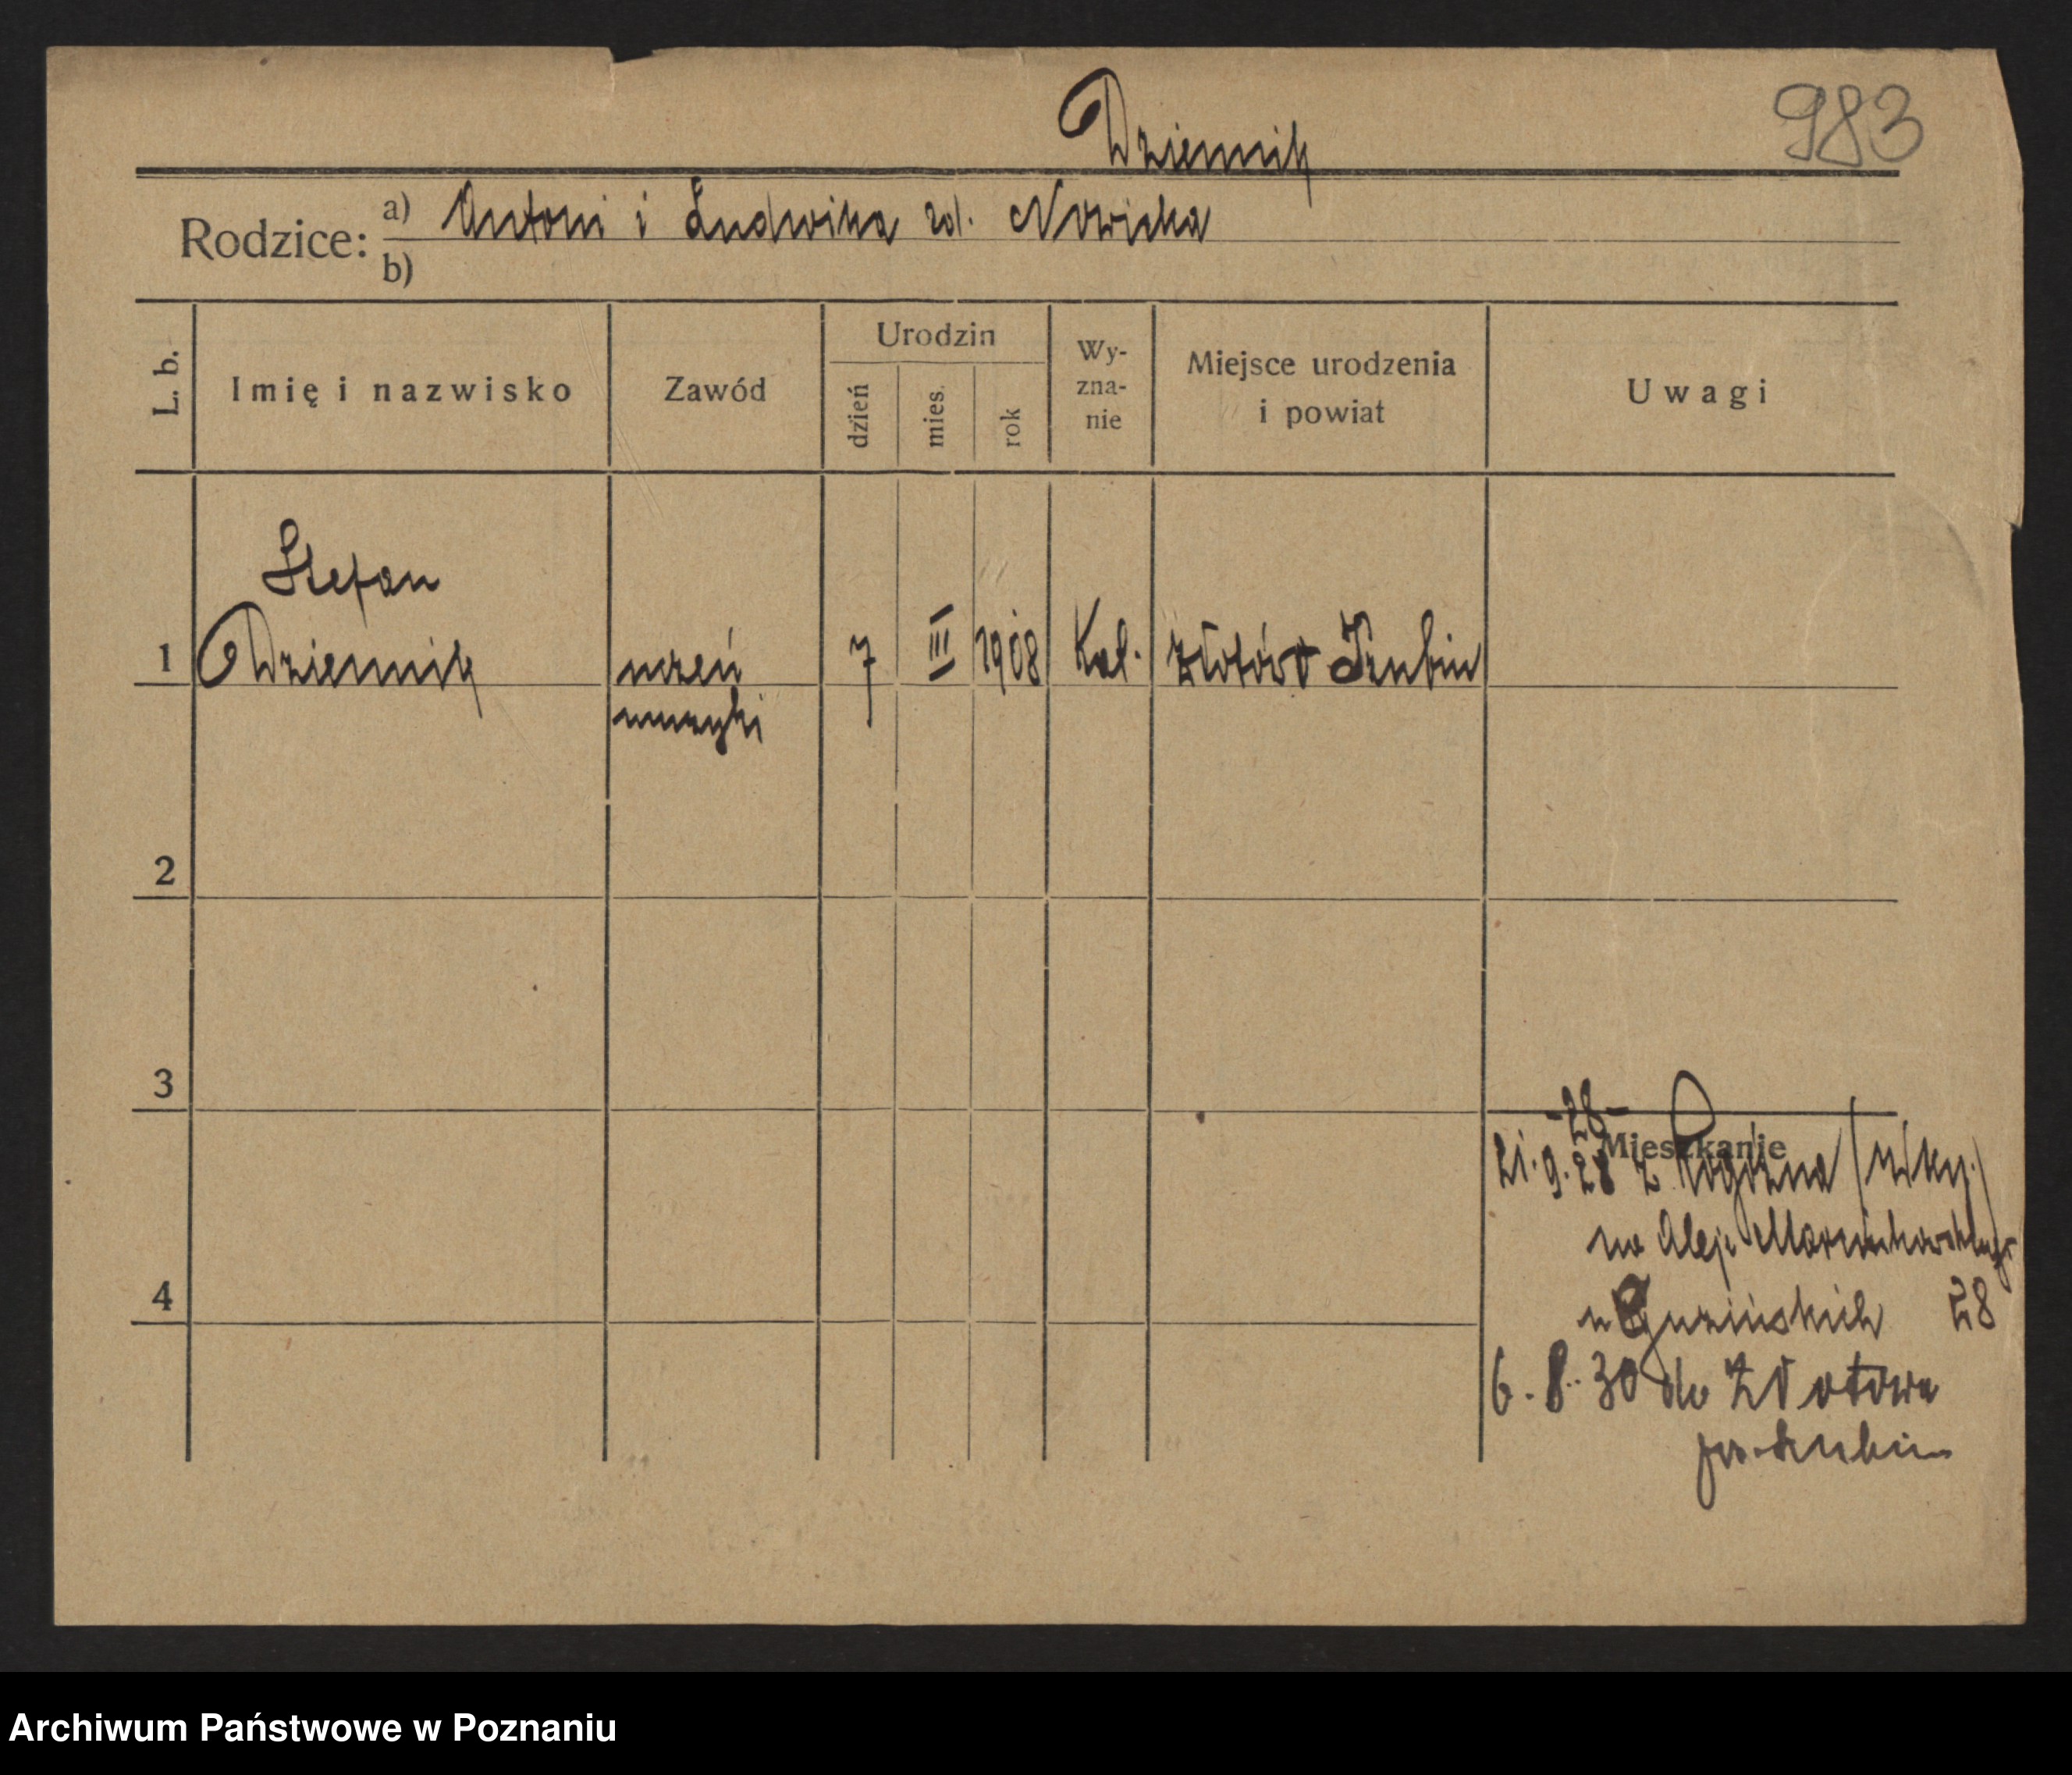 983
Dziennik
Rodzice: a) Antoni i Ludwika zd. Nowicka
b)
L. b. Imię i nazwisko Zawód Urodzin dzień mies. rok Wy-zna-nie Miejsce urodzenia i powiat Uwagi
Stefan
1 Dziennik uczeń 7 III 1908 Kat. Złotów Szubin
muzyki
2
3
-28-
Mieszkanie
21.9.28 z Rogoźna
na Aleje Marcinkowskiego
4
28
6.8.30 do Złotowa
pow. Szubin
Archiwum Państwowe w Poznaniu